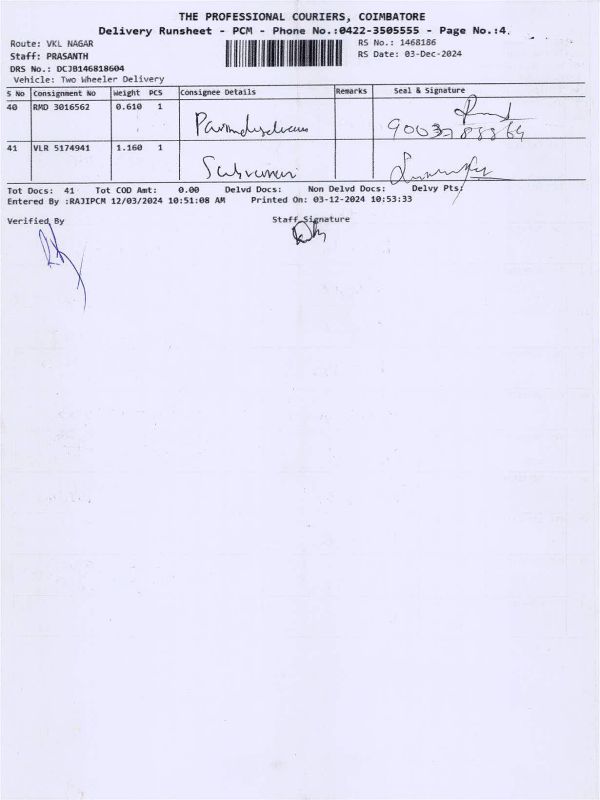 THE PROFESSIONAL COURIERS, COIMBATORE
Delivery Runsheet - PCM - Phone No.:0422-3505555 - Page No.:4.
Route: VKL NAGAR
RS No.: 1468186
Staff: PRASANTH
RS Date: 03-Dec-2024
DRS No.: DCJB146818604
Vehicle: Two Wheeler Delivery
S No Consignment No Weight PCS Consignee Details Remarks Seal & Signature
40 RMD 3016562 0.610 1
41 VLR 5174941 1.160 1
Tot Docs: 41 Tot COD Amt: 0.00 Delvd Docs: Non Delvd Docs: Delvy Pts:
Entered By :RAJIPCM 12/03/2024 10:51:08 AM Printed On: 03-12-2024 10:53:33
Verified By Staff Signature